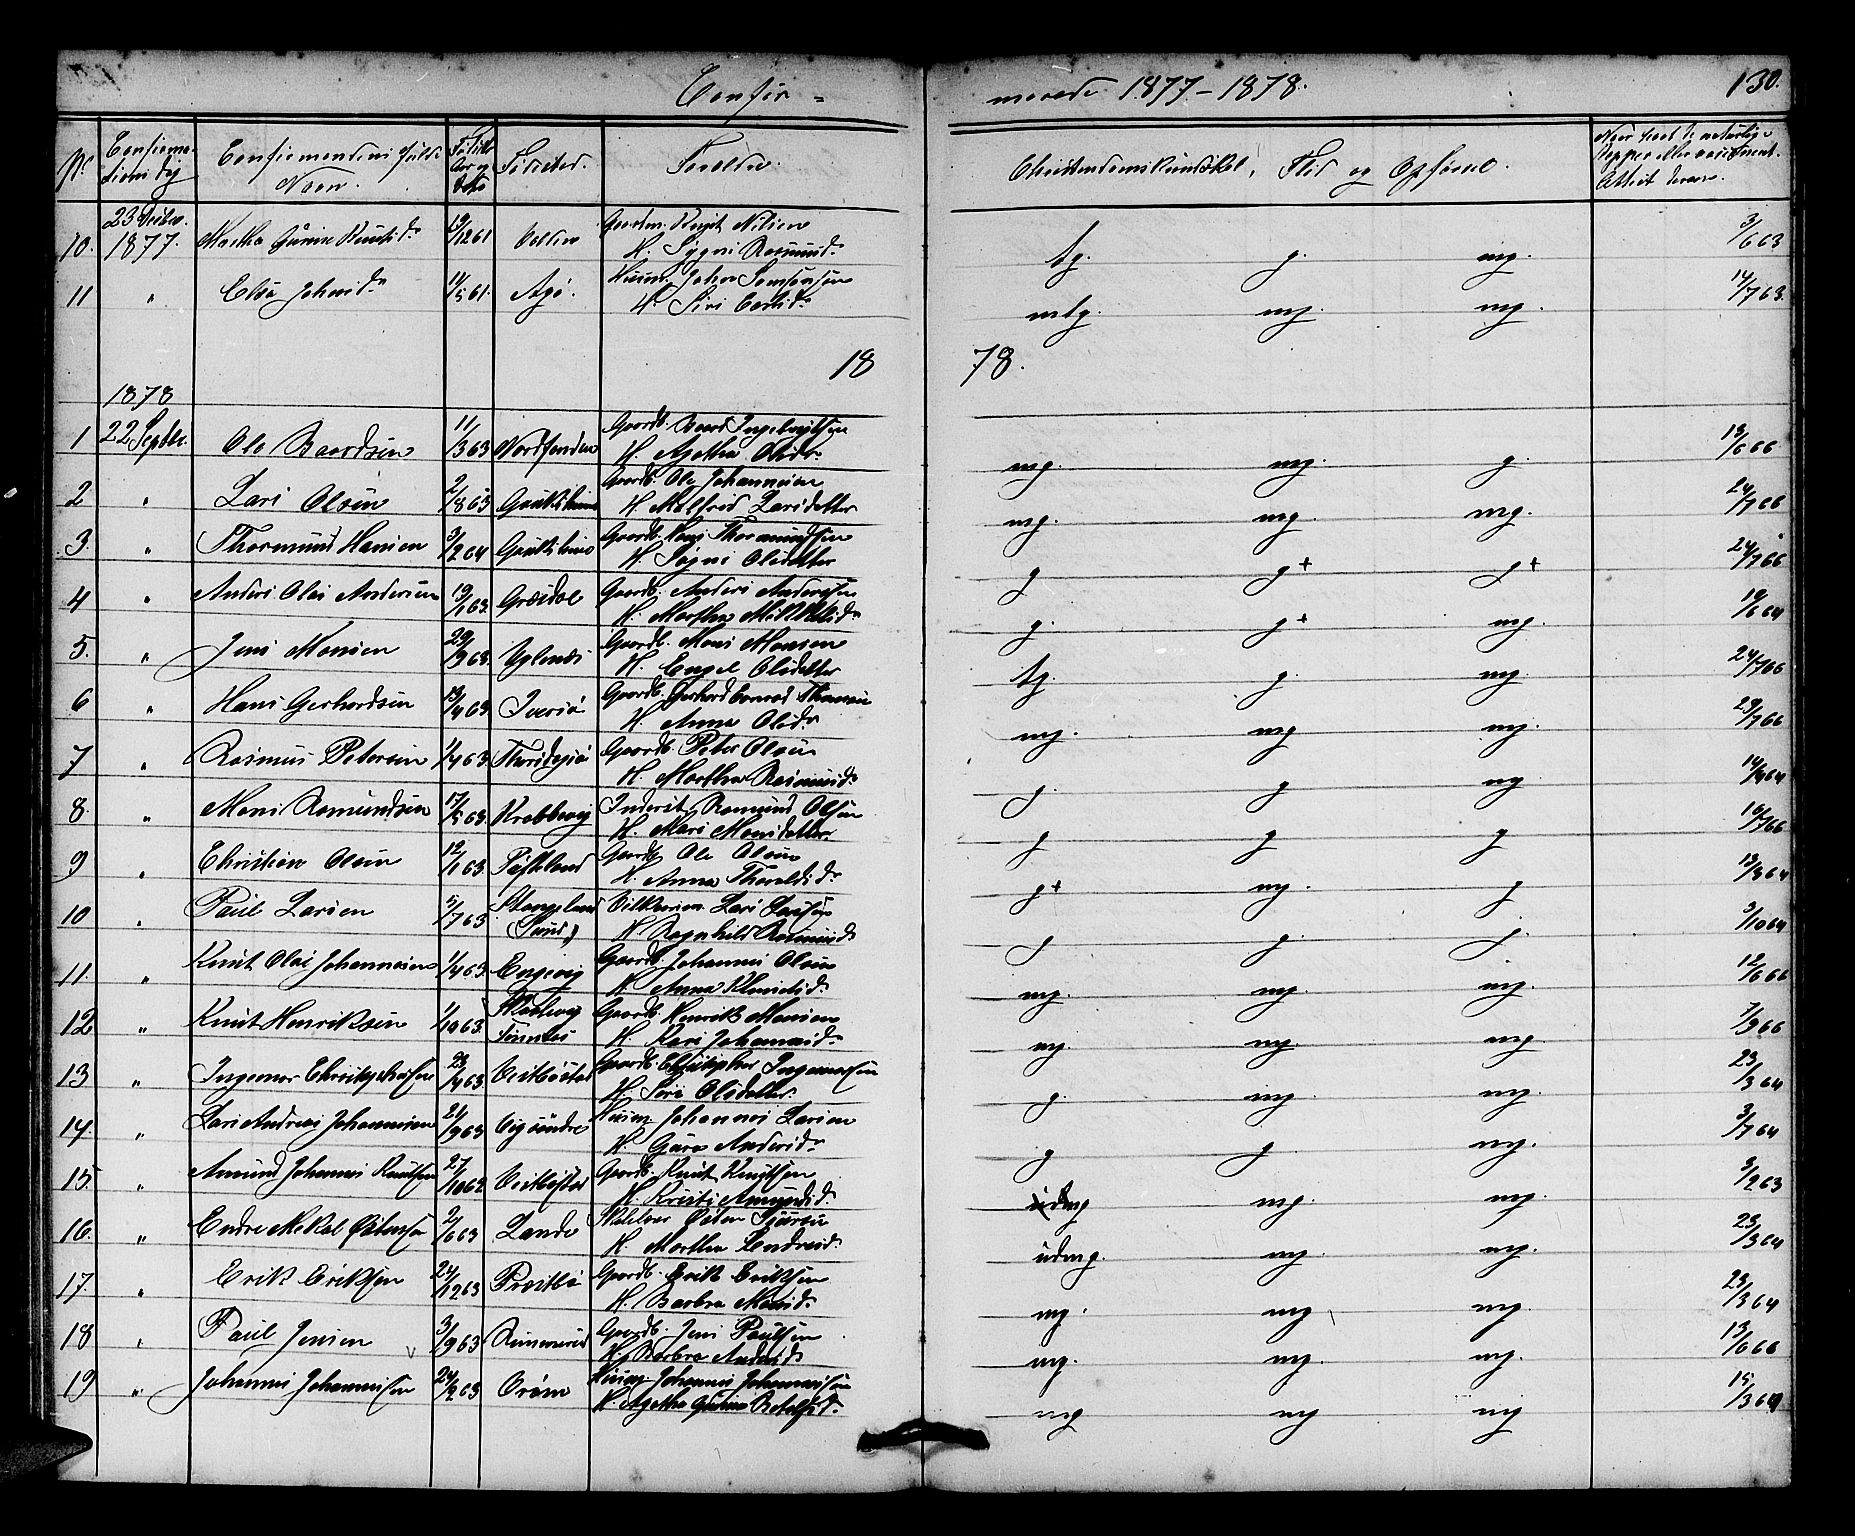 Confir = merede 1877-1878. 130.
No. Confirma- tions Dag Confirmandens fulde Navn. Fødsels Aar og Dato Fødested. Forældre. Christendomskundskab, Flid og Opførsel. Naar havt de naturlige Kopper eller vaccineret. Attest derom.
10. 23 Decbr. 1877. Martha Gurine Knutsd. 19/12 61 Gaardm. Knut Nilsen tg. g. mg. 3/6 63
H. Sygni Rasmusd.
11 " Elsa Johnsd. 11/5 61. Agø. Huusm. John Samsonsen mtg. mg. mg. 14/7 63.
H. Siri Larsd.
18 78.
1878
1 22 Septbr. Ole Baardsen 11/3 63 Gaardb. Baard Ingebrigtsen mg. mg. g. 13/6 66
H. Agatha Olsdr.
2 " Lars Olsen 2/8 63 Gaardb. Ole Johannesen mg. mg. mg. 24/7 66
H. Malfrid Larsdatter
3. " Thormund Hansen 3/2 64 Gaardb. Hans Thormundsen g g+ g+ 24/7 66
H. Sygni Olsdatter
4 " Anders Olai Andersen 19/1 63. Græsdal Gaardb. Anders Andersen g. g+ mg. 19/6 64
H. Martha Mikkelsd.
5. " Jens Monsen 29/9 63. Uglenæs Gaardb. Mons Monsen tg. g. mg 24/7 66
H. Engel Olsdatter
6 " Hans Gerhardsen 13/4 63 Iversø Gaardb. Gerhard Conrad Thomsen mg. mg mg. 29/7 66
H. Anna Olsdr
7 " Rasmus Petersen 1/4 63. Gaardb. Peter Olsen g. g mg 14/9 64
H. Martha Rasmusd.
8. " Mons Romundsen 17/5 63. Krabbevig Inderst Romund Olsen g g g 16/7 66
H. Mari Monsdatter
9 " Christian Olsen 12/1 63. Gaardb. Ole Olsen g+ mg. g 13/3 64
H. Anna Thoraldsd.
10 " Paul Larsen 5/7 63. Stangeland (Sund) Lars Larsen g g. g. 3/10 64
H. Ragnhild Rasmusd.
11. " Knut Olai Johannesen 1/4 63. Engevig Gaardb. Johannes Olsen mg. mg. mg. 12/6 66
H. Anna Klausd.
12 " Knut Henriksen 1/10 63. Gaardb. Henrik Monsen mg. mg mg. 7/9 66
H. Kari Johannesd.
13 " Ingemar Christophersen 23/4 63 Vestbøstad Gaardb. Christopher Ingemarsen g. mg. mg. 23/3 64
H. Siri Olsdatter.
14. " Lars Andreas Johannesen 21/9 63 Vig søndre Huusm. Johannes Larsen g g mg. 3/7 64
H. Guro Andersd.
15. " Amund Johannes Knutsen 27/10 62 Vestbøstad Gaardb. Knut Knutsen udmg mg. mg. 3/2 63
H. Kristi Amundsd.
16. " Endre Mikal Østensen 2/6 63 Lande Østen Sjursen udmg. mg. mg. 23/3 64
H. Martha Endresd.
17. " Erik Eriksen 24/12 63 Præstbø Gaardb. Erik Eriksen mg. mg mg. 23/3 64
H. Barbra Monsd.
18 " Paul Jensen 3/9 63 Gaardb. Jens Paulsen mg. mg. mg. 13/6 66
H. Barbra Andersd.
19 " Johannes Johannesen 24/2 63 Huusm. Johannes Johannesen mg mg mg 15/3 64
H. Agatha Gurine Botolfsd.